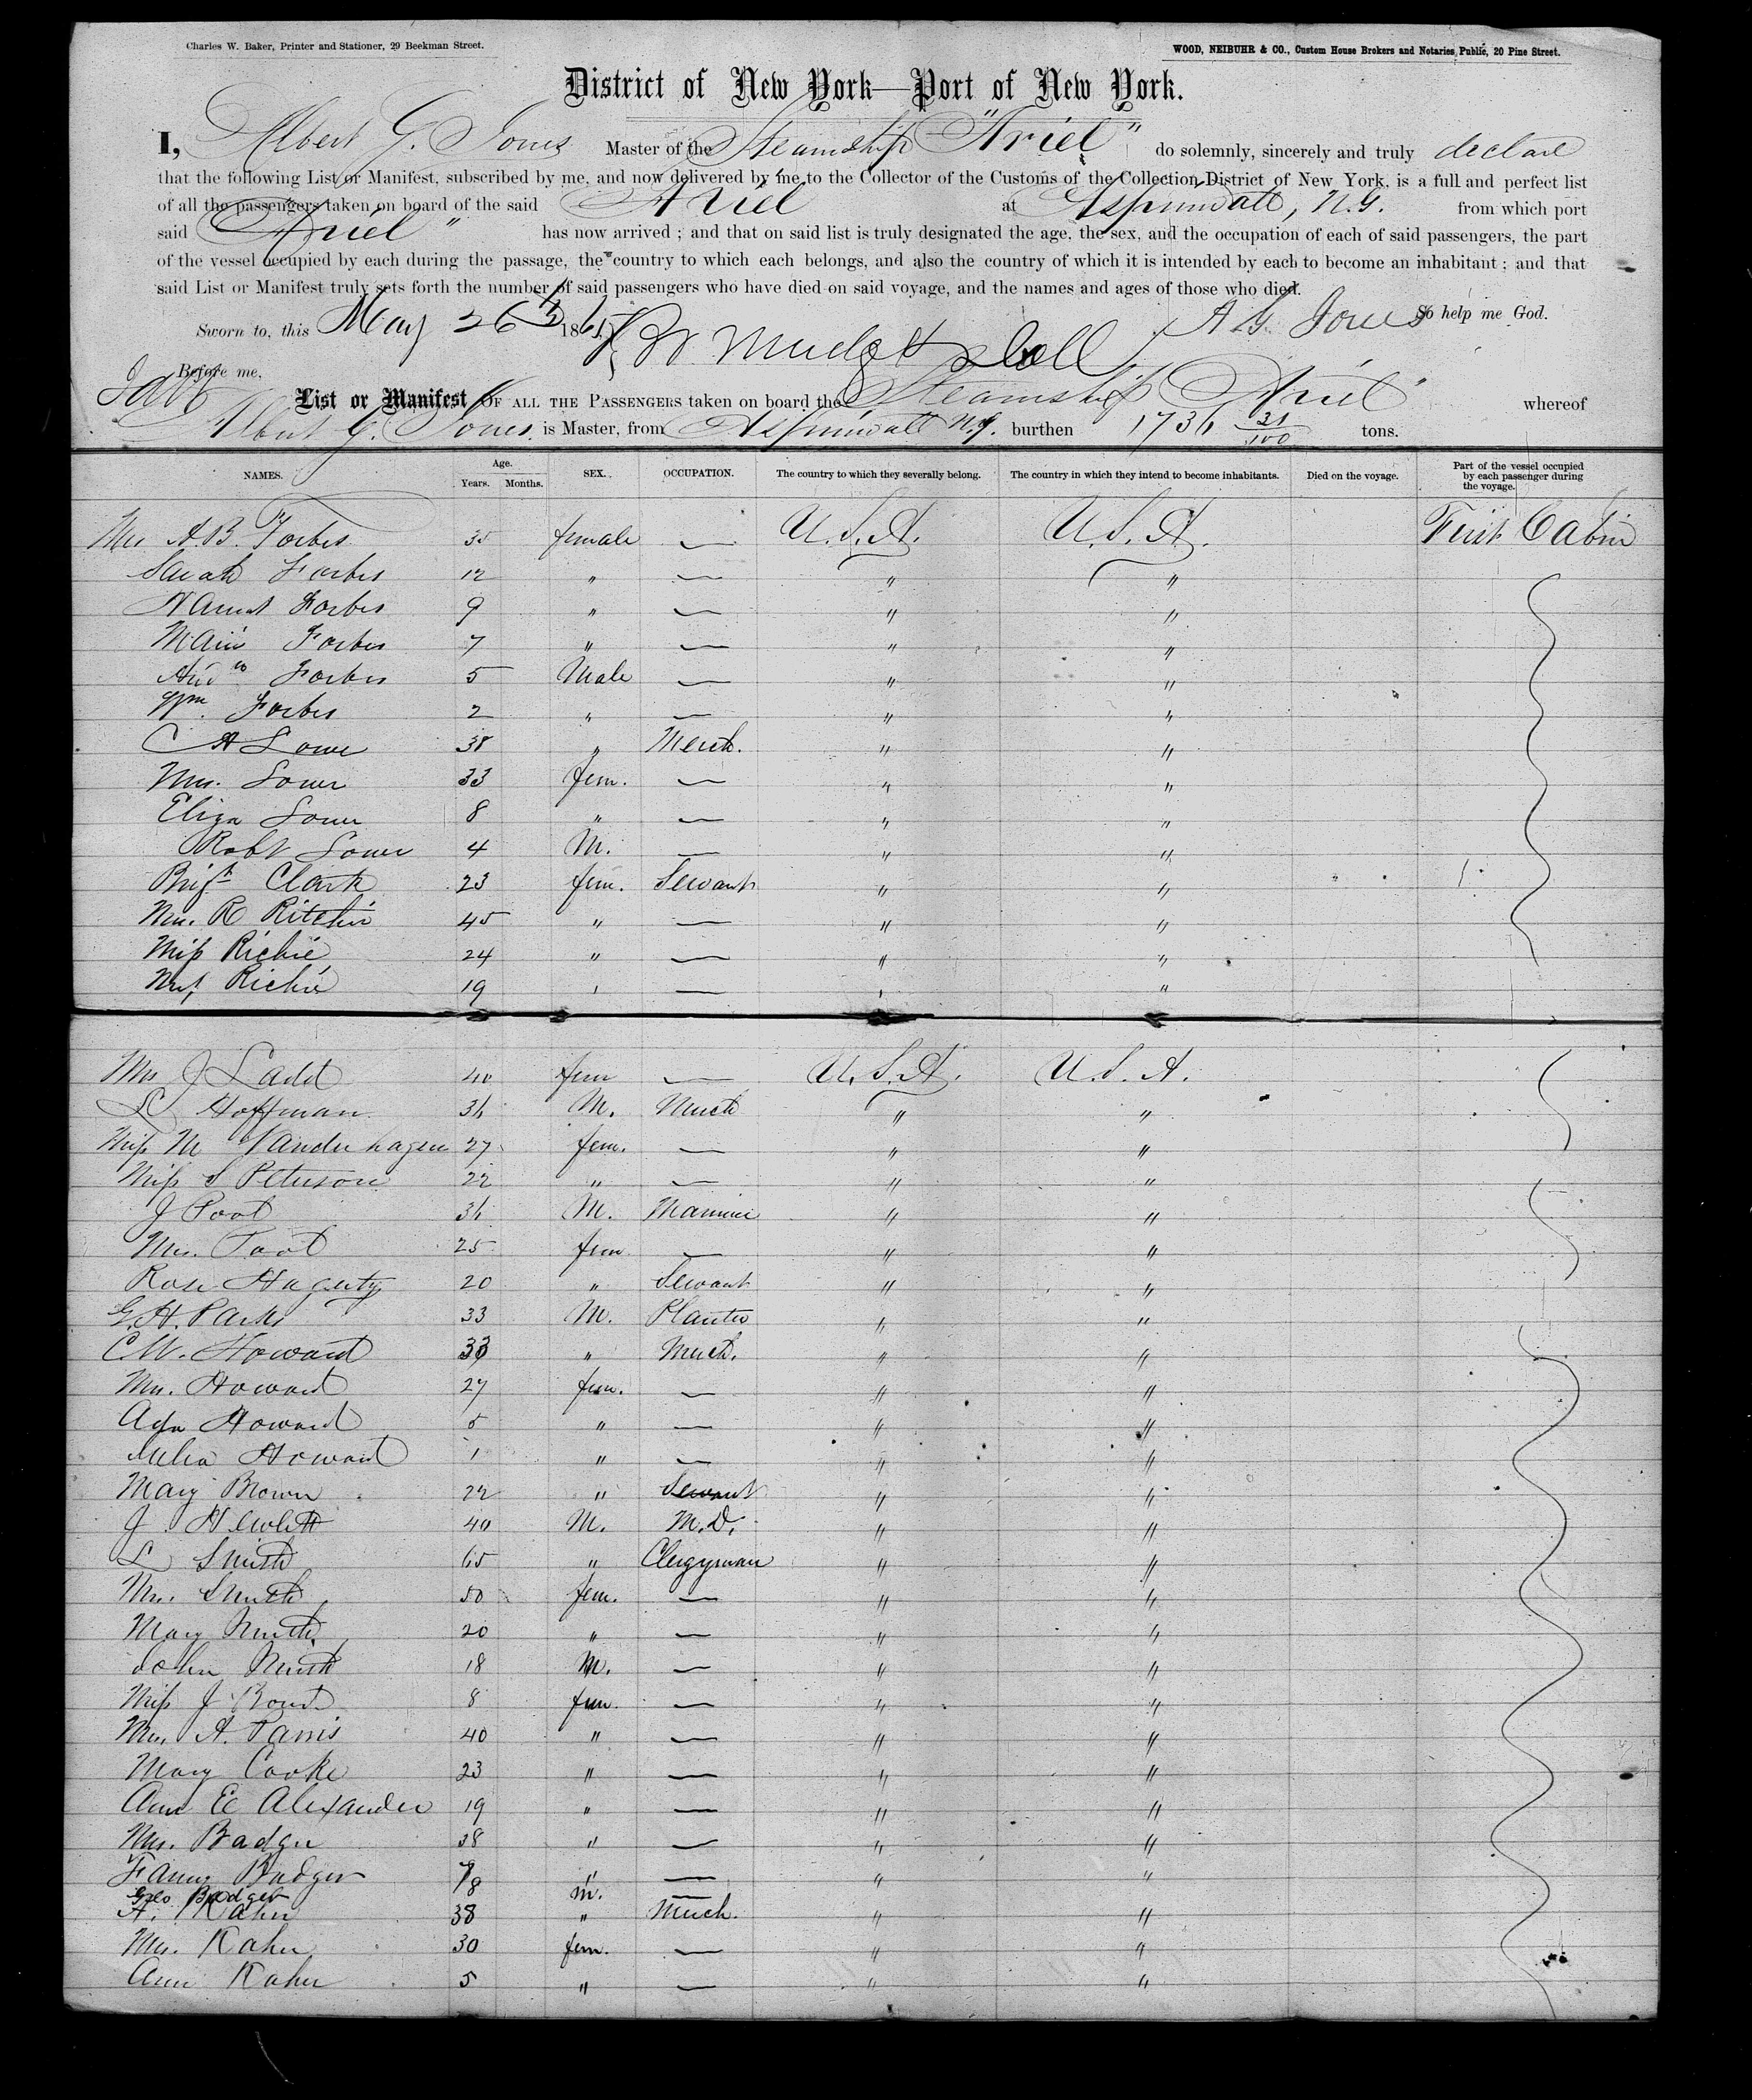 Charles W. Baker, Printer and Stationer, 29 Beekman Street.
WOOD, NEIBUHR & CO., Custom House Brokers and Notaries Public, 20 Pine Street.
District of New York—Port of New York.
I, Albert G. Jones Master of the Steamship "Ariel" do solemnly, sincerely and truly declare
that the following List or Manifest, subscribed by me, and now delivered by me to the Collector of the Customs of the Collection District of New York, is a full and perfect list
of all the passengers taken on board of the said Ariel at Aspinwall, N.G. from which port
said "Ariel" has now arrived ; and that on said list is truly designated the age, the sex, and the occupation of each of said passengers, the part
of the vessel occupied by each during the passage, the country to which each belongs, and also the country of which it is intended by each to become an inhabitant ; and that
said List or Manifest truly sets forth the number of said passengers who have died on said voyage, and the names and ages of those who died.
So help me God.
Sworn to, this May 26th 186 A G Jones
Before me,
List or Manifest OF ALL THE PASSENGERS taken on board the Steamship Ariel whereof
Albert G. Jones is Master, from Aspinwall N.G. burthen 1736 31/100 tons.
NAMES. Age. Years. Months. SEX. OCCUPATION. The country to which they severally belong. The country in which they intend to become inhabitants. Died on the voyage. Part of the vessel occupied by each passenger during the voyage.
Mrs A.B. Forbes 35 female — U.S.A. U.S.A. First Cabin
Sarah Forbes 12 " — " "
Forbes 9 " — " "
Forbes 7 " — " "
Forbes 5 Male — " "
Wm. Forbes 2 " — " "
C A Lowe 38 " Merch. " "
Mrs. Lowe 33 fem. — " "
Eliza Lowe 8 " — " "
Robt Lowe 4 M. — " "
Clark 23 fem. Servant " "
Mrs. R Ritchie 45 " — " "
Miss Richie 24 " — " "
Miss Richie 19 " — " "
Mrs J Ladd 40 fem — U.S.A. U.S.A.
L Hoffman 36 M. Merch " "
Miss M Vanderhagen 27 fem. — " "
Miss S Peterson 22 " — " "
J Poot 36 M. Mariner " "
Mrs. Poot 25 fem — " "
Rose Hagerty 20 " Servant " "
G.H. Parks 33 M. Planter " "
C.W. Howard 33 " Merch. " "
Mrs. Howard 27 fem. — " "
Howard 5 " — " "
Julia Howard 1 " — " "
Mary Brown 22 " Servant " "
J. Hewlett 40 M. M.D. " "
L Smith 65 " Clergyman " "
Mrs. Smith 50 fem. — " "
Mary Smith 20 " — " "
John Smith 18 M. — " "
Miss J 8 fem. — " "
Mrs. A. 40 " — " "
Mary Cooke 23 " — " "
Ann E Alexander 19 " — " "
Mrs. Badger 38 " — " "
Fanny Badger 9 " — " "
Geo Badger 8 m. —
A. Kahn 38 " Merch. " "
Mrs. Kahn 30 fem. — " "
Ann Kahn 5 " — " "